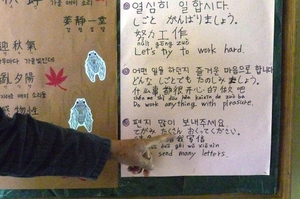 姜靜一堂
강정일당
迎秋氣
亂夕陽
物性
열심히 일합시다.
しごと がんばりましょう。
努力工作
nǔlì gōng zuò
Let's try to work hard.
어떤 일을 하던지 즐거운 마음으로 합니다
どんな しごとでも たのしみましょう。
什么事都很开心的做吧
Do work anything with pleasure.
편지 많이 보내주세요.
てがみ たくさん おくってください。
我写信
duō gěi wǒ xiěxìn
send many letters.